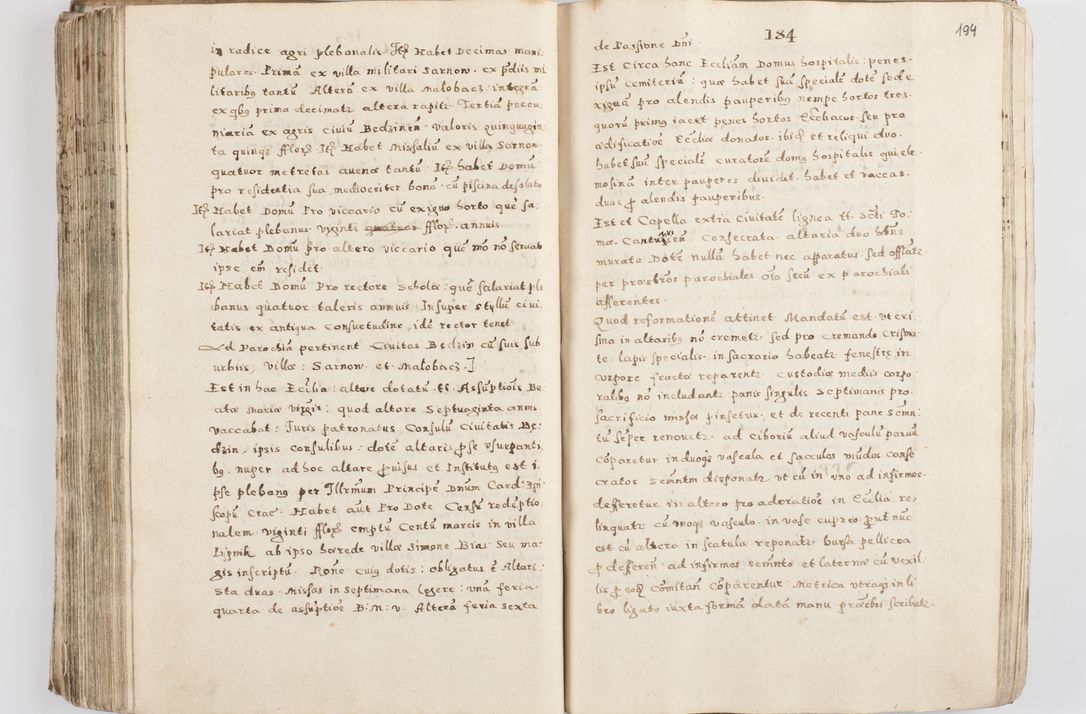 in radice agri plebanalis. Itē Habet Decimas mani
pulares. Primā ex villa militari Sarnow. ex p̄dijs mi
litaribg tantū Alterā ex villa Malobacz: integrā
ex qbg prima decimatz altera rapitz. Tertiā pecu
niariā ex agris civiū Bedzineñ. valoris quinquagin
ta quinqz fflorz Itē Habet Missaliū ex villa Sarnow.
quatuor metretas auenæ tantū. Itē habet Domū
pro residentia sua mediocriter bonā. cū piscina desolata
Itē Habet Domū Pro viccario cū exiguo horto quē sa
lariat plebanus. viginti quatuor fflorz. annuis
Itē Habet Domū pro altero viccario quē mō nō servat
ipse em̄ residet.
Itē Habet Domū Pro rectore Scholæ: quē salariat ple
banus quatuor taleris annuis. Insuper styllū civi
tatis ex antiqua Consuetudine, idē rector tenet
Ad Parochiā pertinent Civitas Bedzin cū suis sub
urbiis, villæ: Sarnow et Malobacz.]
Est in hac Ecclia: altare dotatū tt. Assūptiois Be
atæ Mariæ virgīs: quod altare Septuaginta annis
vaccabat: Juris patronatus Consulū Civitatis Be
dzin, ipsis consulibus: dotē altaris p̄ se usurpanti
bg. nuper ad hoc altare p̄uisus et Institutg est i
pse plebang per Illrmum Principē Dnūm Card: Epi
scopū Crac: Habet aut Pro Dote Censū redēptio
nalem viginti fflorz emptū Centū marcis in villa
Lipnik ab ipso hærede villæ Simone Bias seu ma
gis inscriptū. Rōne cuig dotis: obligatus ē Altari
sta duas Missas in septimana legere: unā feria
quarta de assūptiōe B: M: v. Alterā feria sexta
184
194
de Passione Dni
Est Circa hanc Eccliam Domus hospitalis: penes.
ipsū cemiteriū: quæ habet suā specialē dotē sed e
xiguā pro alendis pauperibg nempe hortos tres.
quorū primg iacet penes hortos Eccliacos. seu pro
ædificatiōe Eccliæ donatos. ibiq et reliqui duo.
habet suū specialē curatorē domg hospitalis qui ele
mosinā inter pauperes dividit. habet et vaccas.
duas p̄ alendis pauperibus.
Est et Capella extra Civitatē lignea tt. Scti To
mæ. Canturieñ. Consecrata. altaria duo hñs
murata Dotē nullā habet nec apparatus. sed officiatz
per præsbros parochiales oīa secū ex parochiali
afferentes.
Quod reformationē attinet Mandatū est. ut cri
sma in altaribg nō cremetz. sed pro cremando Crisma
te lapis specialis. in sacrario habeatz. fenestræ in
corpore fractæ reparentz. Custodiæ mediis corpo
ralibg nō includantz. panis singulis septimanis pro
sacrificio missæ pinsetur. et de recenti pane Scmn
tū sēper renovetz. ad Ciboriū aliud vasculū parvū
Cōparetur in duogz vascula et sacculos mūdos conse
cratos Scmntm disponatz. ut cū in uno ad infirmos
defferetur in altero pro adoratiōe in Ecclia re
linquatz cū uno qz vasculo. in vase cupreo p̄ut nūc
est cū altero in scatula reponatz. bursa pellicea
p̄ defferen̄. ad infirmos scmīnto et laterna cū vexil
lis p̄ eog Comitañ Cōparentur. Metrica utragz in li
bro ligato iuxta formā datā manu præsbri scribatz.